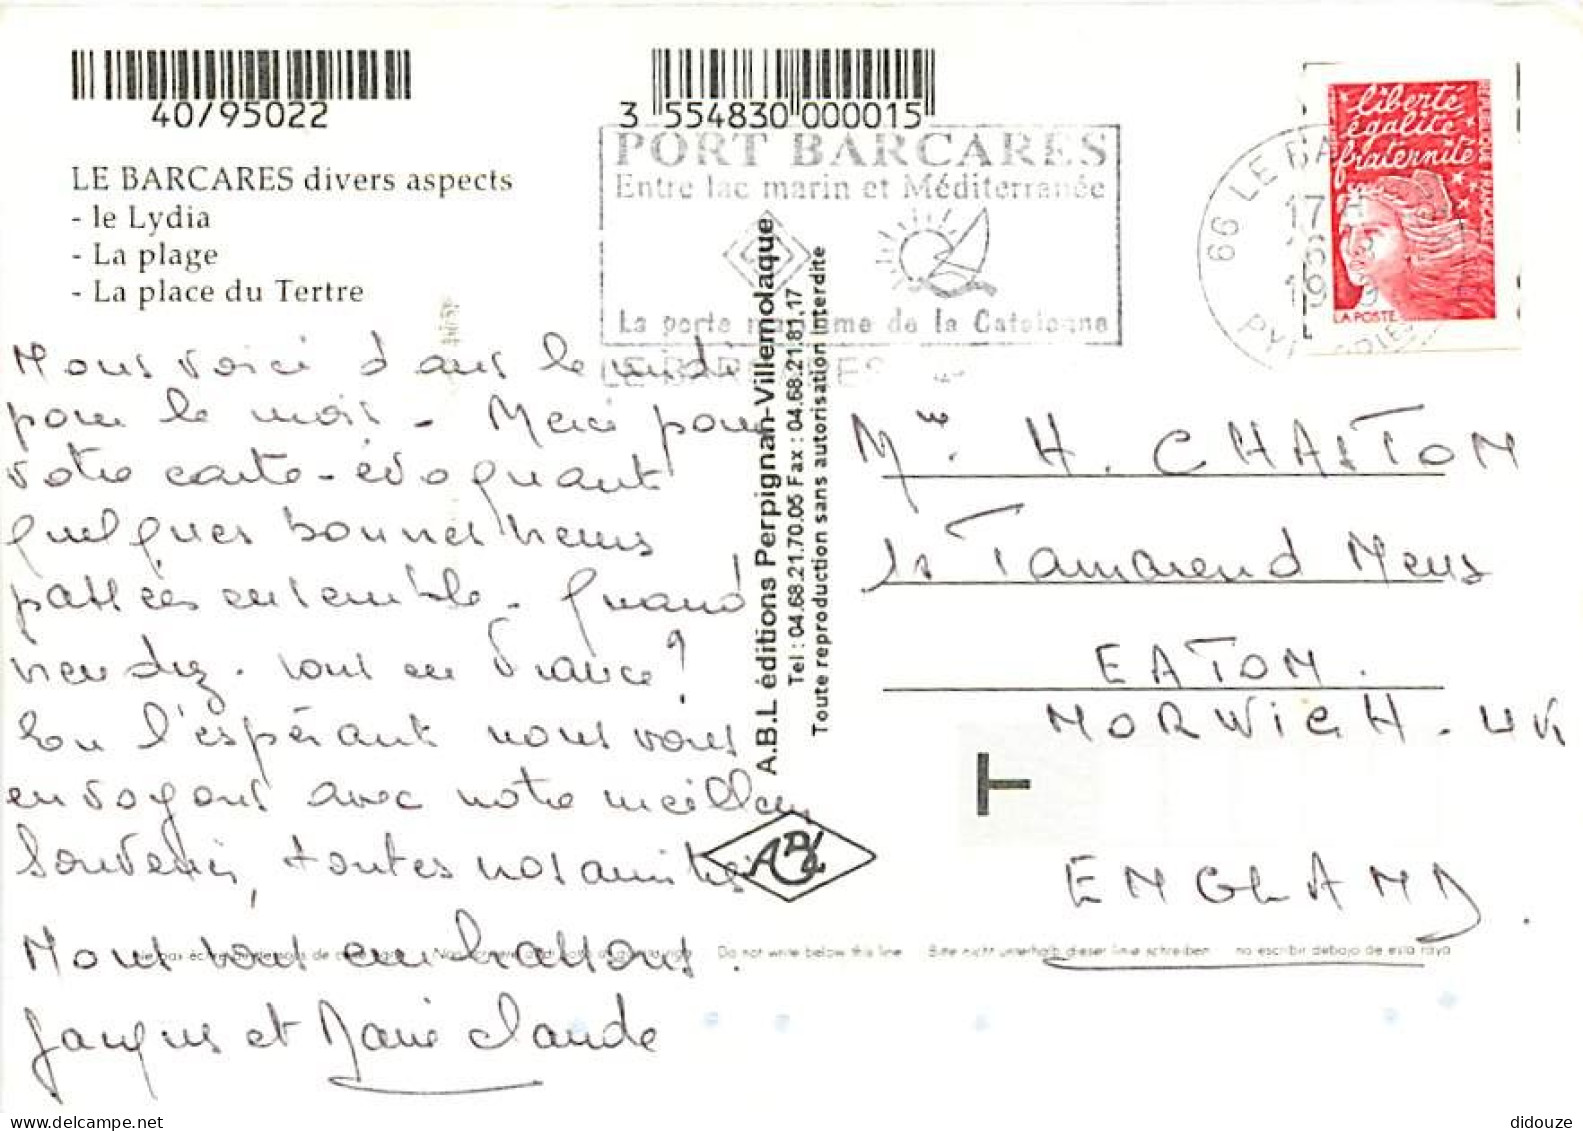 40/95022
3 554830 000015
LE BARCARES divers aspects
- le Lydia
- La plage
- La place du Tertre
PORT BARCARES
Entre lac marin et Méditerranée
La porte maritime de la Catalogne
LE BARCARES
66 LE BA
17
liberté
égalité
fraternité
LA POSTE
Nous voici dans le midi
pour le mois - Merci pour
votre carte - évoquant
quelques bonnes heures
passées ensemble. Quand
viendrez-vous en France ?
En l'espérant nous vous
envoyons avec notre meilleur
souvenir, toutes nos amitiés
Nous vous embrassons.
Jacques et Marie Claude
A.B.L éditions Perpignan-Villemolaque
Tel : 04.68.21.70.05 Fax : 04.68.21.81.17
Toute reproduction sans autorisation interdite
ABL
H. CHASTON
Tamarend Mews
EATON.
NORWICH. UK
T
ENGLAND.
Do not write below this line
Bitte nicht unterhalb dieser linie schreiben
no escribir debajo de esta raya
didouze